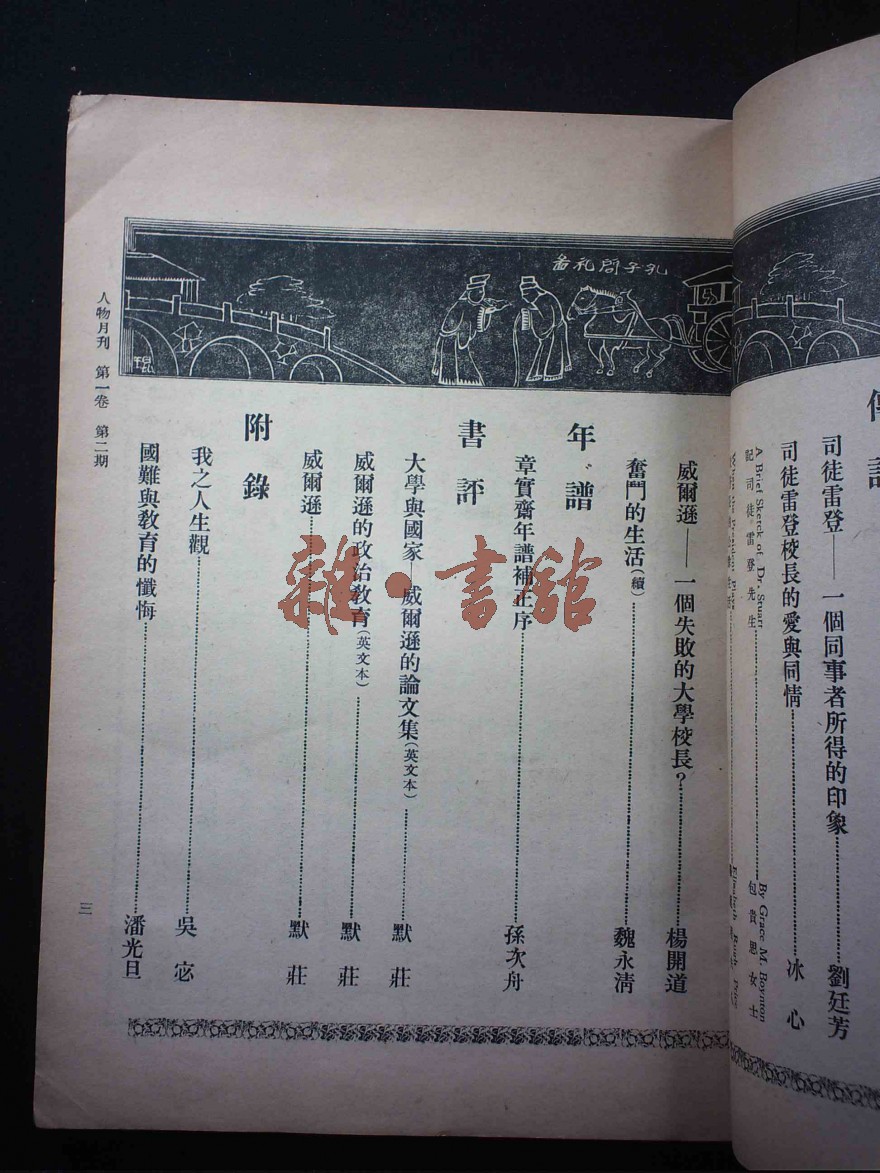 傳記
司徒雷登——一個同事者所得的印象……劉廷芳
司徒雷登校長的愛與同情……冰心
A Brief Sketck of Dr. Stuart……By Grace M. Boynton
記司徒雷登先生……包貴思女士
孔子問礼畵
威爾遜——一個失敗的大學校長?……楊開道
奮鬥的生活(續)……魏永清
年譜
章實齋年譜補正序……孫次舟
書評
大學與國家—威爾遜的論文集(英文本)……默莊
威爾遜的政治敎育(英文本)……默莊
威爾遜……默莊
附錄
我之人生觀……吳宓
國難與敎育的懺悔……潘光旦
人物月刊 第一卷 第二期
三
雜·書舘